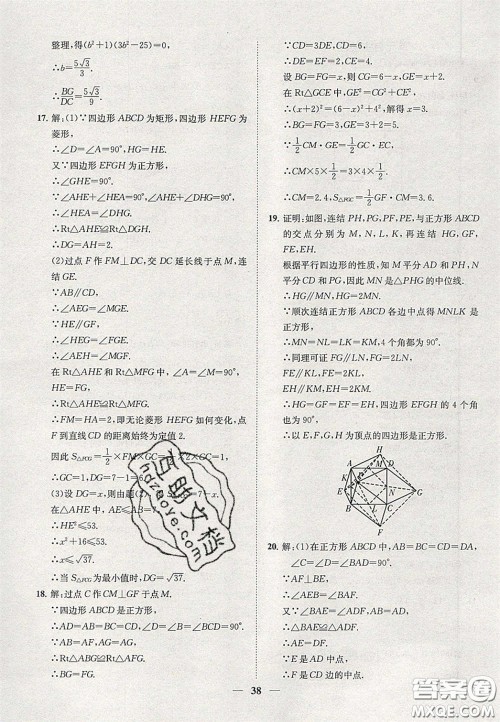 整理,得(b²+1)(3b²-25)=0,
∴b=5√3/3.
∴BG/DC=5√3/9.
17. 解:(1)∵四边形ABCD为矩形,四边形HEFG为
菱形,
∴∠D=∠A=90°,HG=HE.
又∵四边形EFGH为正方形,
∴∠GHE=90°.
∵∠AHE+∠AEH=90°,∠AHE+∠DHG=90°,
∴∠HEA=∠DHG.
∴Rt△AHE≌Rt△DGH,
∴DG=AH=2.
(2)过点F作FM⊥DC,交DC延长线于点M,连
结GE.
∵AB∥CD,
∴∠AEG=∠MGE.
∵HE∥GF,
∴∠HEG=∠FGE.
∴∠AEH=∠MGF.
在Rt△AHE和Rt△MFG中,∠A=∠M=90°,
HE=FG.
∴Rt△AHE≌Rt△MFG.
∴FM=HA=2,即无论菱形HEFG如何变化,点
F到直线CD的距离始终为定值2.
因此S△FCG=1/2×FM×GC=1/2×2×GC=1,
∴GC=1,DG=7-1=6.
(3)设DG=x,则由题(2)
在△AHE中,AE≤AB=
∴HE²≤53.
∴x²+16≤53.
∴x≤√37.
∴当S△FCG为最小值时,DG=√37.
18. 解:过点C作CM⊥GF于点M.
∵四边形ABCD是正方形,
∴AB=AD=BC=CD,∠D=∠B=∠BCD=90°.
∴AD=AF,AG=AG,
∴Rt△ABG≌Rt△AFG.
∴BG=FG.
∵CD=3DE,CD=6,
∴DE=EF=2,CE=4.
设BG=FG=x,则CG=6-x.
在Rt△GCE中,GE²=CG²+CE².
∴(x+2)²=(6-x)²+4²,解得x=3.
∴BG=GF=CG=3,GE=3+2=5.
∵1/2CM·GE=1/2GC·EC,
∴CM×5×1/2=3×4×1/2.
∴CM=2.4,S△FGC=1/2GF·CM=3.6.
19. 证明:如图,连结PH,PG,PF,PE,与正方形ABCD
的交点分别为M,N,L,K,再连结HG,GF,
FE,EH.
根据平行四边形的性质,知M平分AD和PH,N
平分CD和PG,因此MN是△PHG的中位线.
∴HG∥MN,HG=2MN.
∵顺次连结正方形ABCD各边中点得MNLK是
正方形.
∴MN=NL=LK=KM,4个角都为90°.
∴同理可证FG∥LN,FG=2LN,
FE∥KL,FE=2KL,
EH∥KM,EH=2KM.
∴HG=GF=FE=EH,四边形EFGH的4个角
也为90°.
∴以E,F,G,H为顶点的四边形是正方形.
H
A M D
K P N G
E
B L C
F
20. 解:(1)在正方形ABCD中,AB=BC=CD=DA,
∠BAD=∠D=90°.
∵AF⊥BE,
∴∠BAE=∠ADF,∠ABE=∠DAF.
∴△ABE≌△DAF.
∴AE=DF.
∵E是AD中点,
∴F是CD边的中点.
38
互助文档
hdzuoye.com
答案圈
MXQE.COM